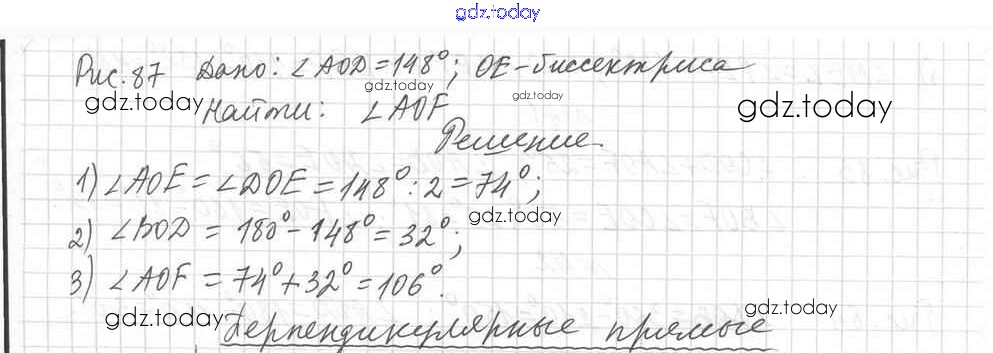 gdz.today
Рис. 87 Дано: ∠AOD = 148°; OE - биссектриса
gdz.today gdz.today gdz.today gdz.today
Найти: ∠AOF
Решение.
1) ∠AOE = ∠DOE = 148° : 2 = 74°;
gdz.today
2) ∠BOD = 180° - 148° = 32°;
3) ∠AOF = 74° + 32° = 106°.
gdz.today gdz.today
Перпендикулярные прямые